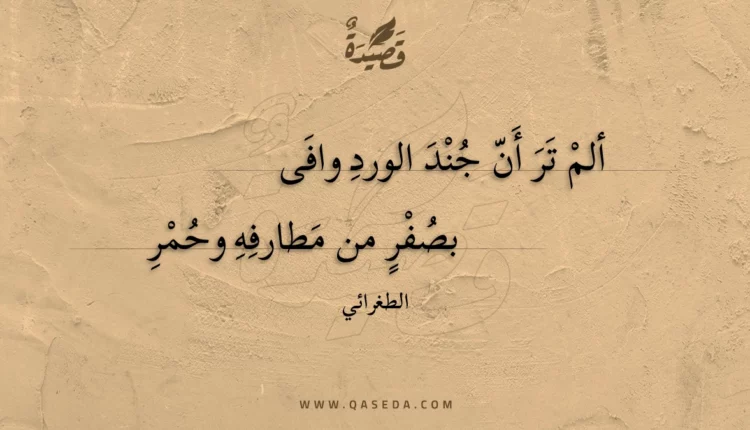 قَصِيدَةٌ
ألمْ تَرَ أَنّ جُنْدَ الوردِ وافَى
بصُفْرٍ من مَطارفِهِ وحُمْرِ
الطغرائي
WWW.QASEDA.COM